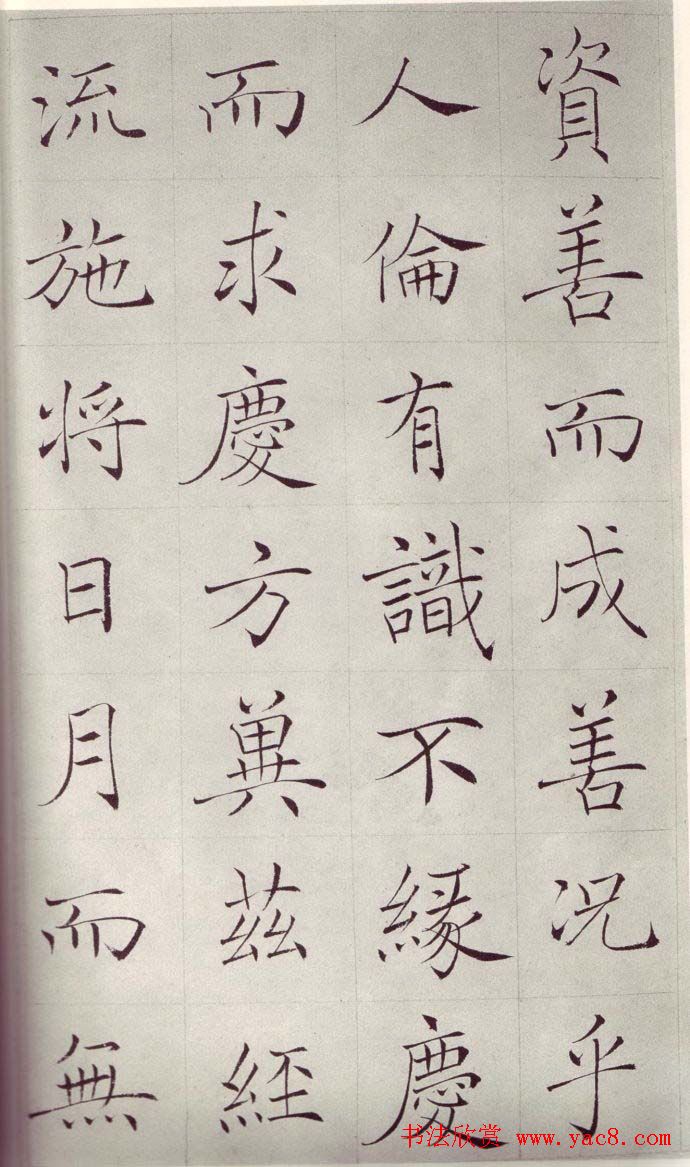 資善而成善況乎
人倫有識不緣慶
而求慶方冀茲經
流施将日月而無
书法欣赏 www.yac8.com